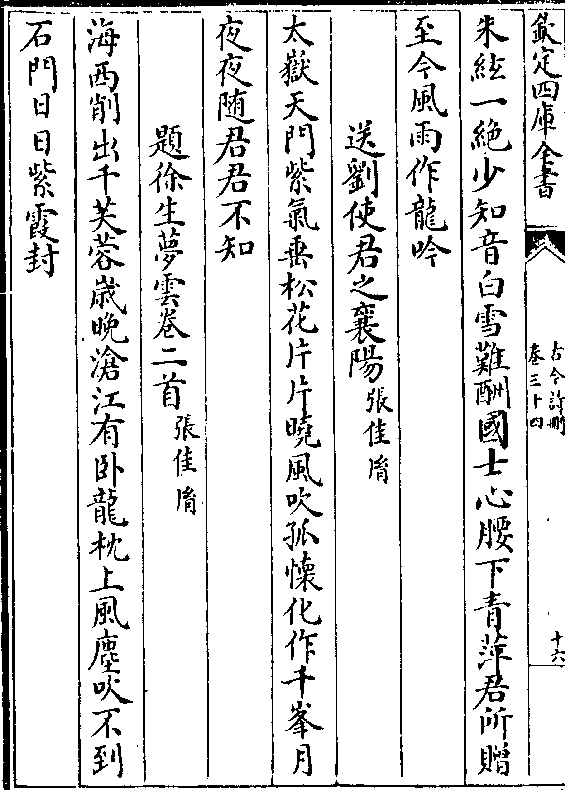 欽定四庫全書
古今詩刪
卷三十四
十六
朱絃一絶少知音白雪難酬國士心腰下青萍君所贈
至今風雨作龍吟
送劉使君之襄陽張佳𦙍
太嶽天門紫氣垂松花片片曉風吹孤懷化作千峯月
夜夜随君君不知
題徐生夢雲卷二首張佳𦙍
海西削出千芙蓉歲晚滄江有卧龍枕上風塵吹不到
石門日日紫霞封